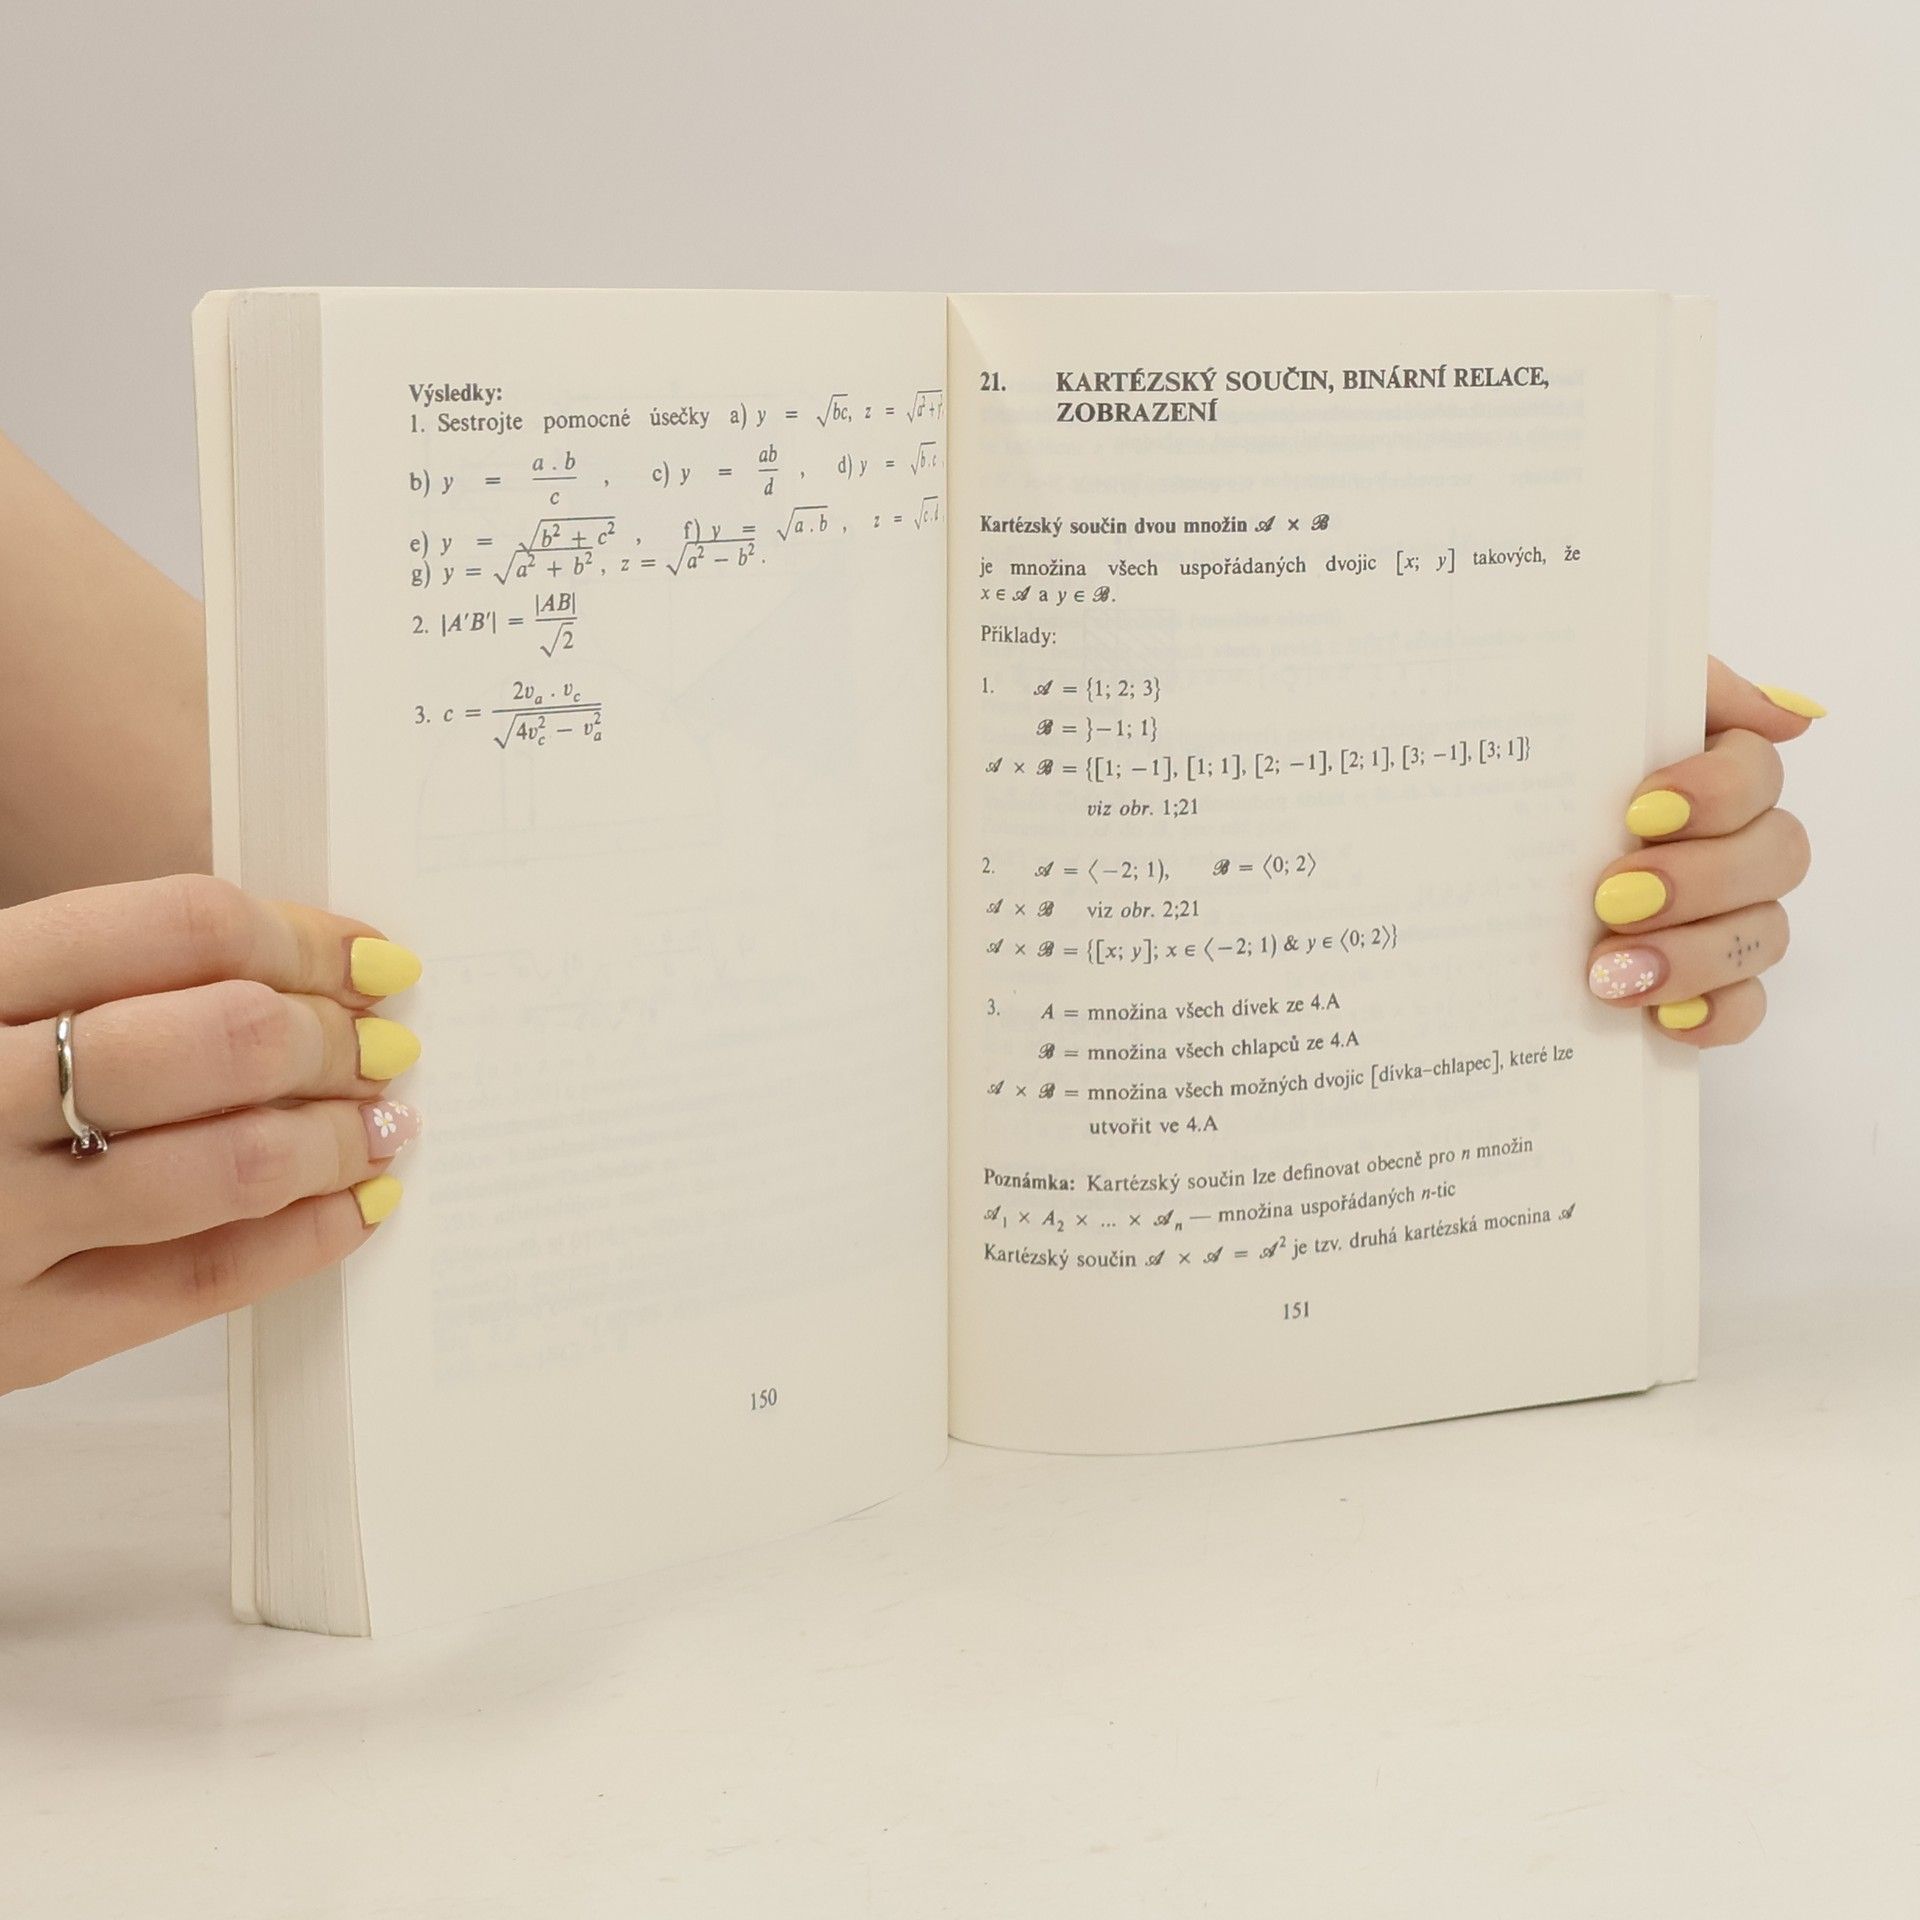 Výsledky:
1. Sestrojte pomocné úsečky a) y = √bc, z =
b) y = a . b / c , c) y = ab / d , d) y = √b.c
e) y = √b² + c² , f) y = √a . b , z = √c.d
g) y = √a² + b² , z = √a² − b² .
2. |A′B′| = |AB| / √2
3. c = 2vₐ . v_c / √4v_c² − vₐ²
150
21. KARTÉZSKÝ SOUČIN, BINÁRNÍ RELACE,
ZOBRAZENÍ
Kartézský součin dvou množin 𝒜 × ℬ
je množina všech uspořádaných dvojic [x; y] takových, že
x ∈ 𝒜 a y ∈ ℬ.
Příklady:
1. 𝒜 = {1; 2; 3}
ℬ = }−1; 1}
𝒜 × ℬ = {[1; −1], [1; 1], [2; −1], [2; 1], [3; −1], [3; 1]}
viz obr. 1;21
2. 𝒜 = ⟨−2; 1), ℬ = ⟨0; 2⟩
𝒜 × ℬ viz obr. 2;21
𝒜 × ℬ = {[x; y]; x ∈ ⟨−2; 1) & y ∈ ⟨0; 2⟩}
3. A = množina všech dívek ze 4.A
ℬ = množina všech chlapců ze 4.A
𝒜 × ℬ = množina všech možných dvojic [dívka–chlapec], které lze
utvořit ve 4.A
Poznámka: Kartézský součin lze definovat obecně pro n množin
𝒜₁ × A₂ × ... × 𝒜ₙ — množina uspořádaných n-tic
Kartézský součin 𝒜 × 𝒜 = 𝒜² je tzv. druhá kartézská mocnina 𝒜
151